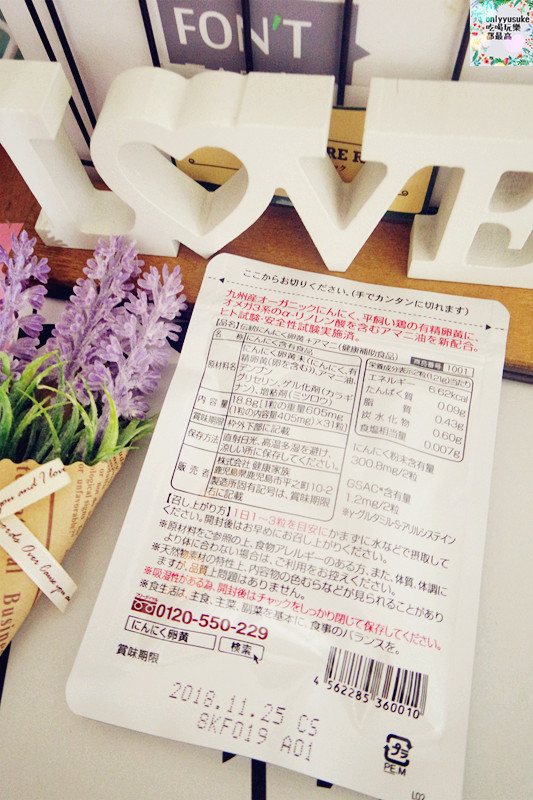 onlyyusuke
吃喝玩樂
都最高
FON'T
LOVE
ここからお切りください。(手でカンタンに切れます)
九州産オーガニックにんにく、平飼い鶏の有精卵黄に
オメガ3系のα-リノレン酸を含むアマニ油を新配合。
ヒト試験・安全性試験実施済。
【品名】伝統にんにく卵黄+アマニ(健康補助食品)
商品番号 1001
名称 にんにく含有食品
原材料名 にんにく卵黄末(にんにく、有精
卵黄(卵を含む))、アマニ油、
デンプン
グリセリン、ゲル化剤(カラギ
ナン)、増粘剤(ミツロウ)
内容量 18.8g(1粒の重量605mg
(1粒の内容量405mg)×31粒)
賞味期限 枠外下部に記載
保存方法 直射日光、高温多湿を避け、
涼しい所に保存してください。
販売者 株式会社 健康家族
鹿児島県鹿児島市平之町10-2
製造所固有記号は、賞味期限
右に記載
栄養成分表示2粒(1.21g)当たり
エネルギー 6.62kcal
たんぱく質 0.09g
脂質 0.43g
炭水化物 0.60g
食塩相当量 0.007g
にんにく粉末含有量
300.8mg/2粒
GSAC*含有量
1.2mg/2粒
※γ-グルタミル-S-アリルシステイン
【召し上がり方】1日1~3粒を目安にかまずに水などで摂取して
ください。開封後はお早めにお召し上がりください。
※原材料をご参照の上、食物アレルギーのある方、また、体質、体調に
より体に合わない場合は、ご利用をお控えください。
※天然物素材の特性上、内容物の色むらなどが見られることがあり
ますが、品質上問題はありません。
※吸湿性がある為、開封後はチャックをしっかり閉じて保存してください。
※食生活は、主食、主菜、副菜を基本に、食事のバランスを。
0120-550-229
にんにく卵黄 検索
賞味期限
2018.11.25 CS
8KF019 A01
4 562285 360010
プラ
PE,M
L02
you and I love